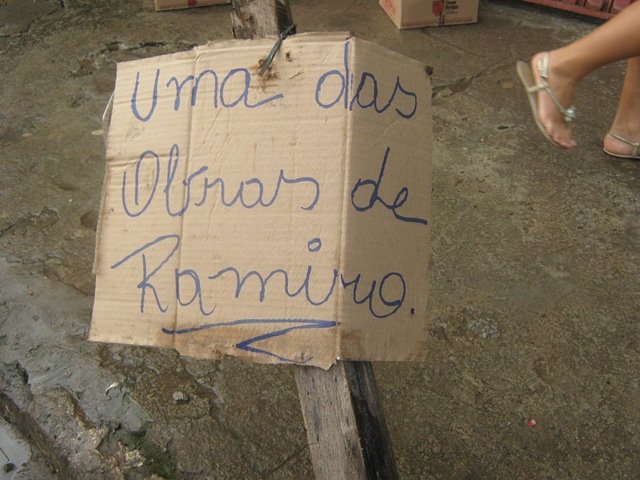 uma das
Obras de
Ramiro.